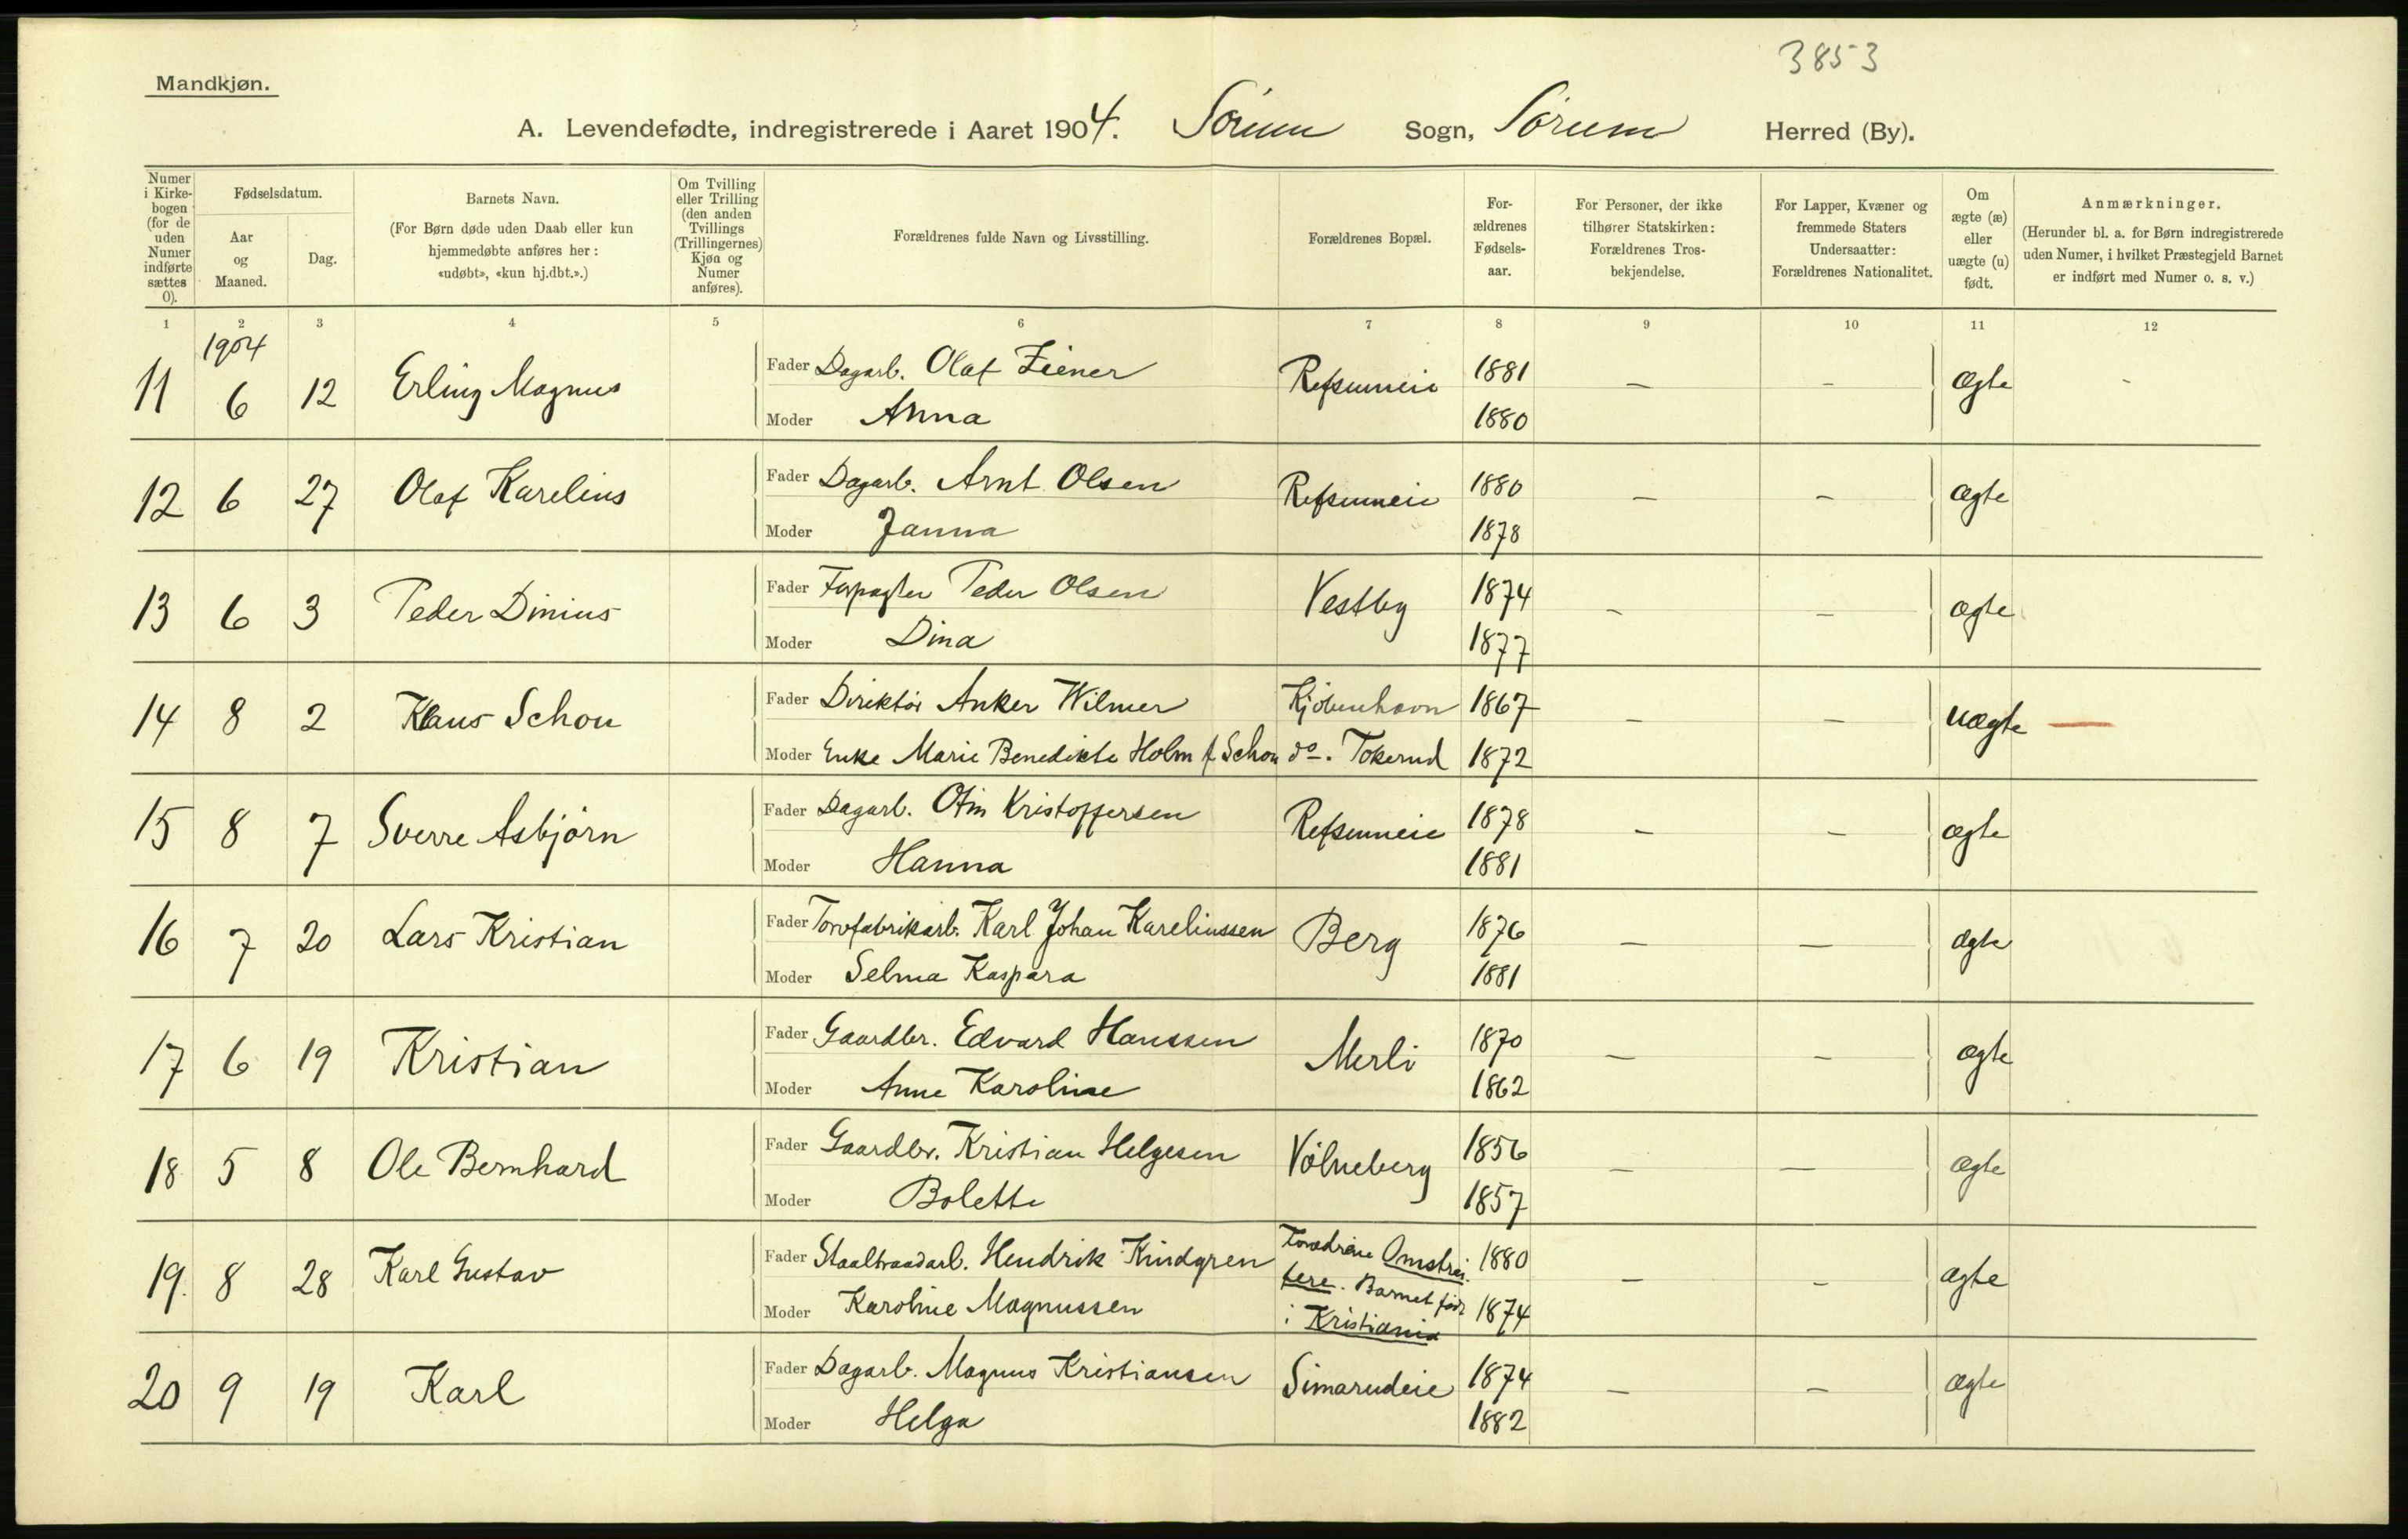 3853
Mandkjøn.
A. Levendefødte, indregistrerede i Aaret 1904. Sørum Sogn, Sørum Herred (By).
Numer i Kirkebogen (for de uden Numer indførte sættes 0).
Fødselsdatum.
Aar og Maaned.
Dag.
Barnets Navn.
(For Børn døde uden Daab eller kun
hjemmedøbte anføres her:
«udøbt», «kun hj.dbt.».)
Om Tvilling eller Trilling (den anden Tvillings (Trillingernes) Kjøn og Numer anføres).
Forældrenes fulde Navn og Livsstilling.
Forældrenes Bopæl.
Forældrenes Fødselsaar.
For Personer, der ikke
tilhører Statskirken:
Forældrenes Trosbekjendelse.
For Lapper, Kvæner og
fremmede Staters
Undersaatter:
Forældrenes Nationalitet.
Om ægte (æ) eller uægte (u) født.
Anmærkninger.
(Herunder bl. a. for Børn indregistrerede
uden Numer, i hvilket Præstegjeld Barnet
er indført med Numer o. s. v.)
1 2 3 4 5 6 7 8 9 10 11 12
1904
11 6 12 Erling Magnus Fader Dagarb. Olaf Ziener Refsumeie 1881 – – Ægte -
Moder Anna 1880
12 6 27 Olaf Karelius Fader Dagarb. Arnt Olsen Refsumeie 1880 – – ægte
Moder Janna 1878
13 6 3 Peder Dinius Fader Forpagter Peder Olsen Vestby 1874 – – ægte
Moder Dina 1877
14 8 2 Klaus Schou Fader Direktør Anker Wilmer Kjøbenhavn 1867 – – uægte —
Moder Enke Marie Benedicte Holm f. Schou do. Tokerud 1872
15 8 7 Sverre Asbjørn Fader Dagarb. Otin Kristoffersen Refsumeie 1878 – – ægte
Moder Hanna 1881
16 7 20 Lars Kristian Fader Torvfabrikarb. Karl Johan Kareliussen Berg 1876 – – ægte
Moder Selma Kaspara 1881
17 6 19 Kristian Fader Gaardbr. Edvard Hanssen Merli 1870 – – ægte
Moder Anne Karoline 1862
18 5 8 Ole Bernhard Fader Gaardbr. Kristian Helgesen Vølneberg 1856 – – ægte
Moder Bolette 1857
19. 8 28 Karl Gustav Fader Staaltraadarb. Hendrik Kindgren Omstrei- 1880 – – ægte
fere. Barnet født
Moder Karoline Magnussen 1874
i Kristiania
20 9 19 Karl Fader Dagarb. Magnus Kristiansen Simarudeie 1874 – – ægte
Moder Helga 1882